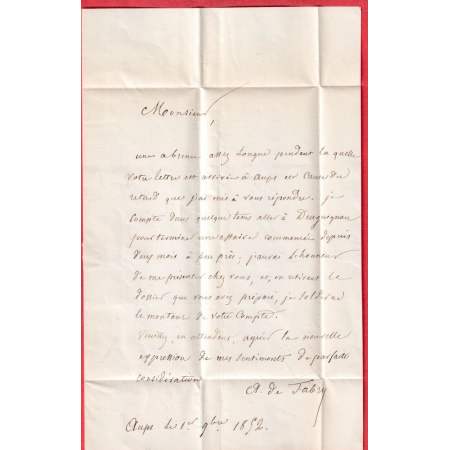 Monsieur,
une absence assez longue pendant la quelle
votre lettre est arrivée à Aups est cause du
retard que j'ai mis à vous répondre. je
compte dans quelque tems aller à Draguignan
pour terminer une affaire commencée depuis
deux mois à peu près; j'aurai l'honneur
de me présenter chez vous, et, en retirant le
dossier que vous avez préparé, je solderai
le montant de votre Compte.
Veuillez, en attendant, agréer la nouvelle
expression de mes sentiments de parfaite
considération
A. de Fabry
Aups le 1er 9bre 1852.